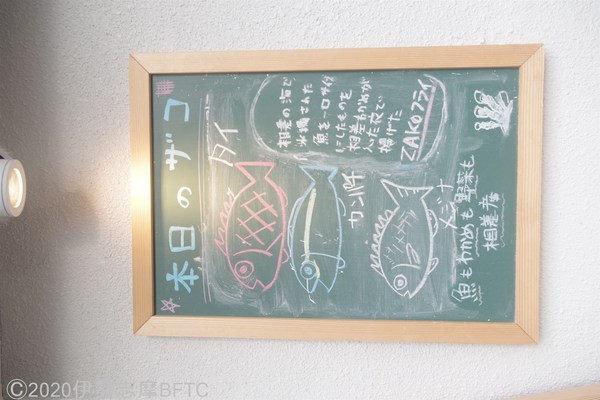 本日のザコ
タイ
カンパチ
メジナ
相差の海で
水揚された
魚を一口サイズ
にしたものを
相差わかめが
入った衣で
揚げた
ZAKOフライ
魚もわかめも野菜も
相差産
©2020伊勢志摩BFTC